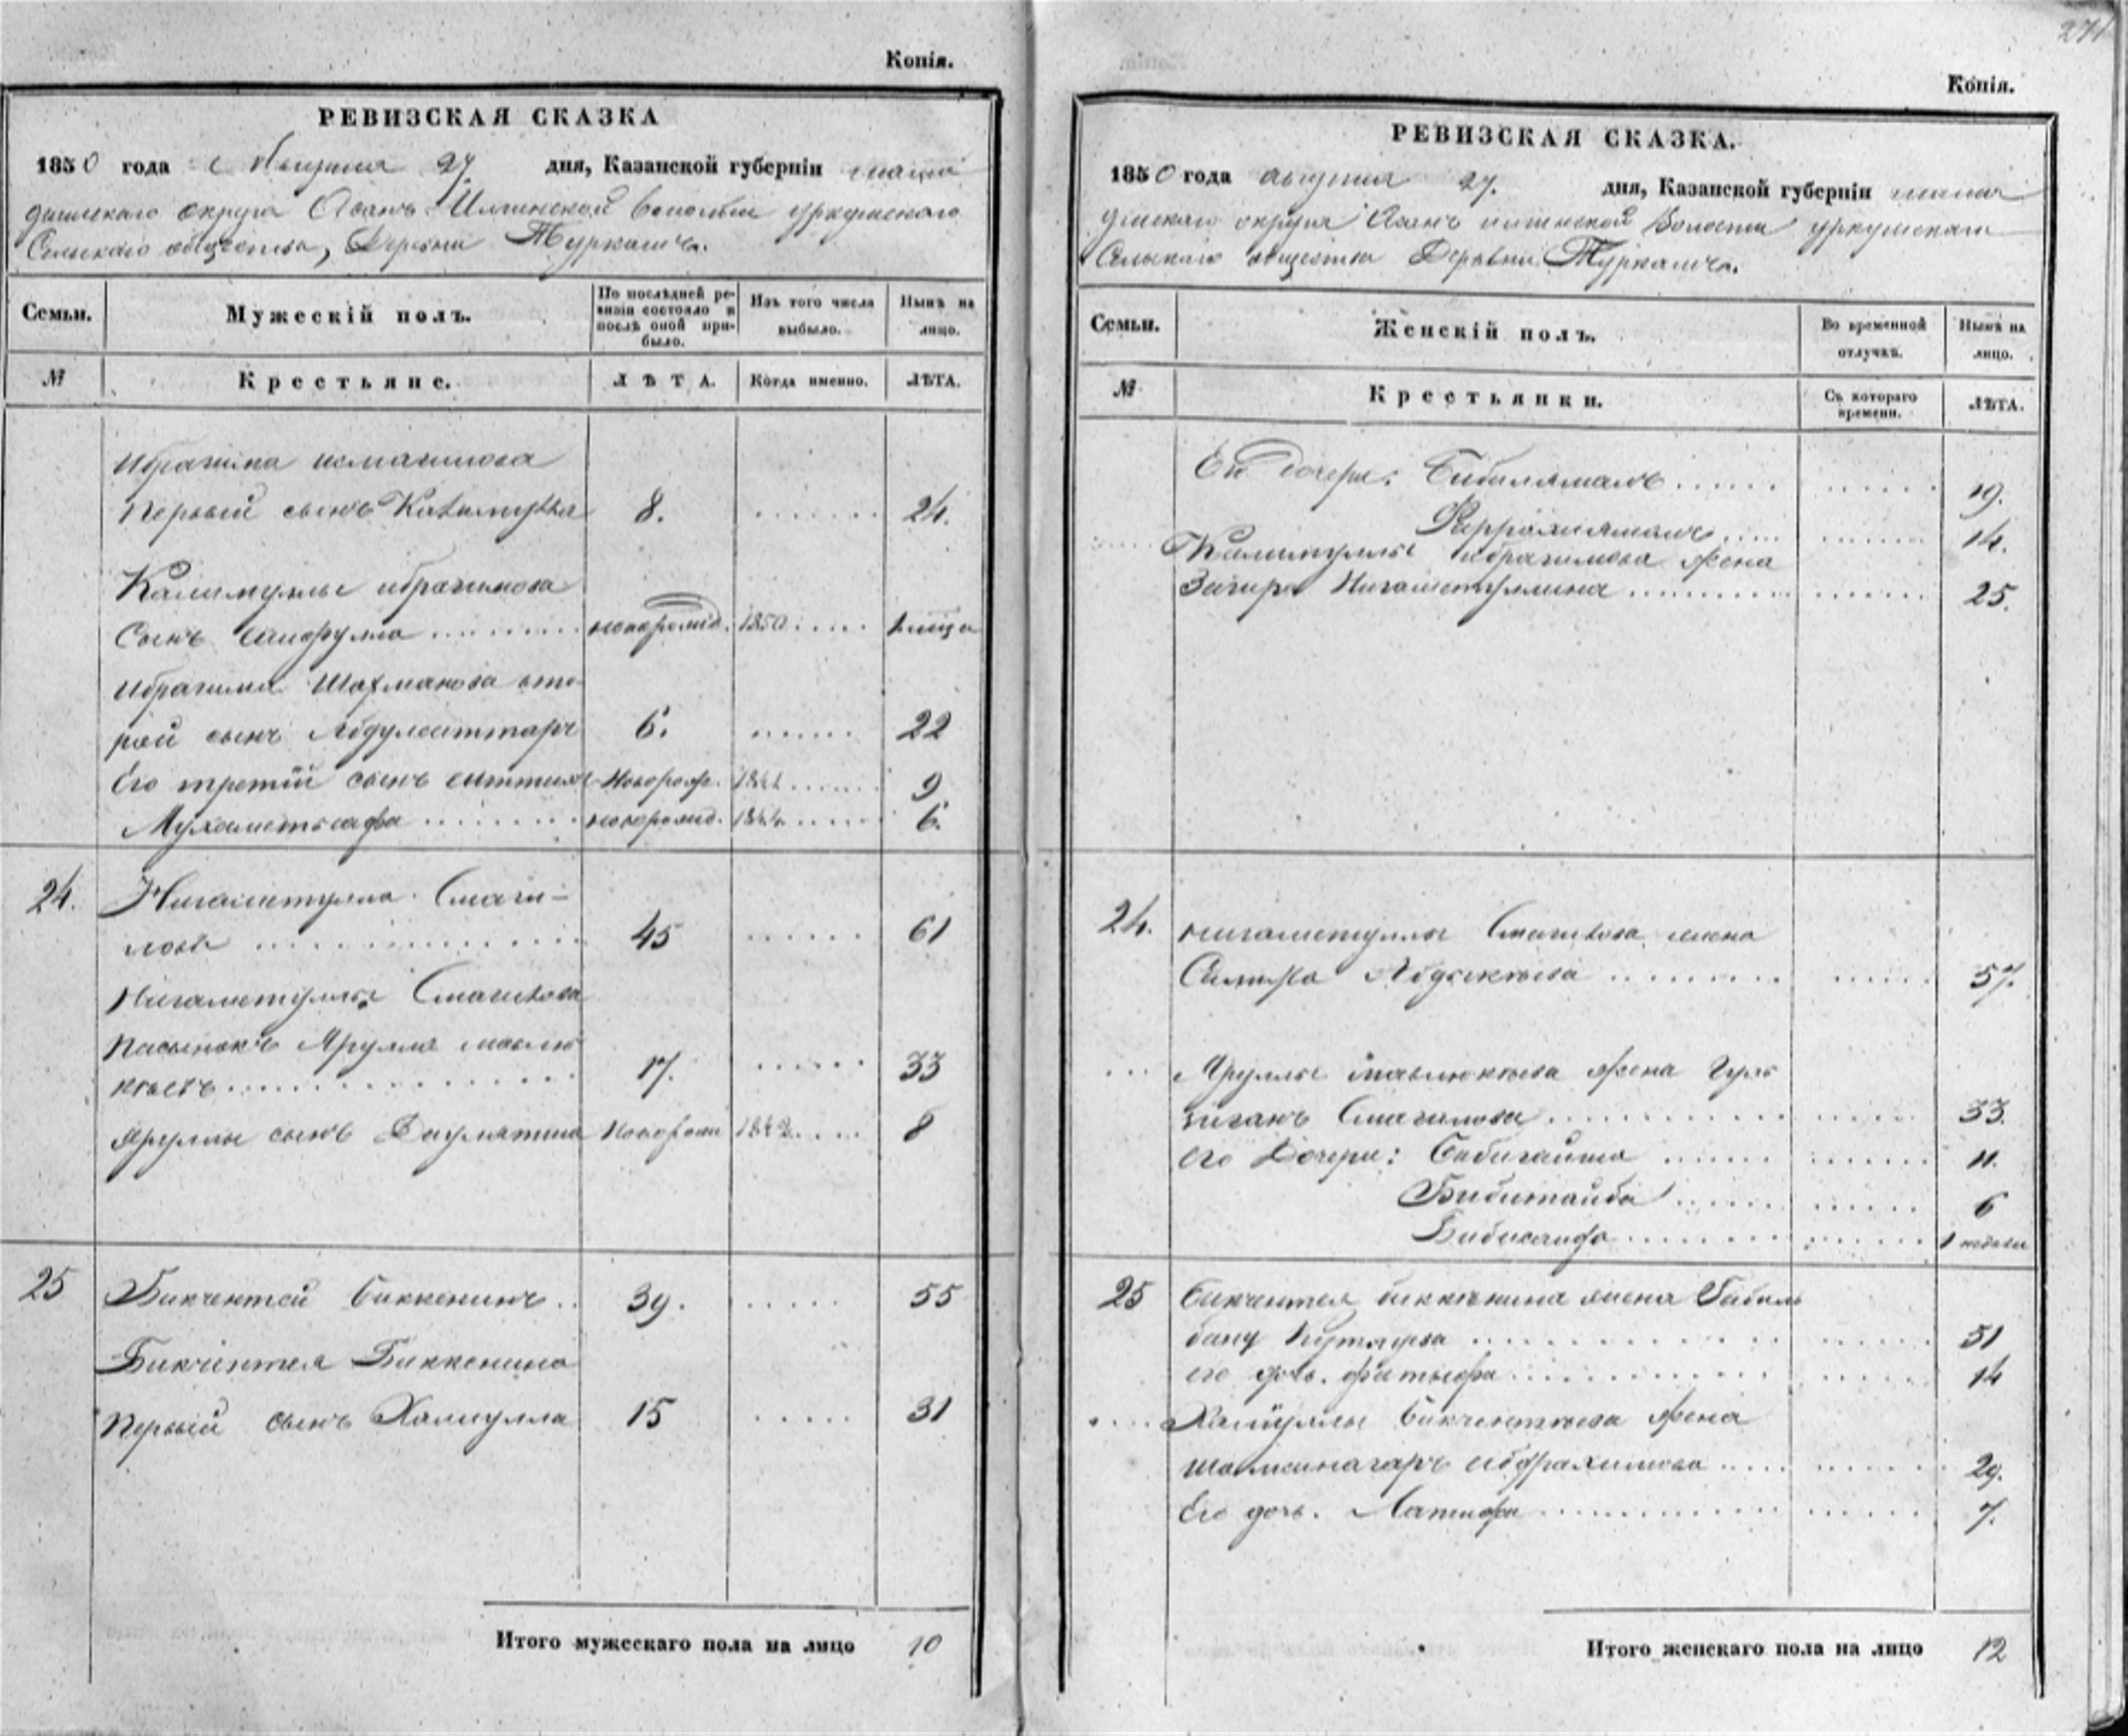 Копія.
РЕВИЗСКАЯ СКАЗКА
1850 года Августа 27. дня, Казанской губерніи мама
дышскаго округа Асанъ Илгинской волости уркушскаго
Сельскаго общества, Деревни Туркашъ.
Семьи.
Мужескій полъ.
По послѣдней ре-
визіи состояло и
послѣ оной при-
было.
Изъ того числа
выбыло.
Нынѣ на
лицо.
№
Крестьяне.
ЛѢТА.
Когда именно.
ЛѢТА.
Ибрагима исмагилова
Первый сынъ Калимулла 8. 24.
Калимуллы ибрагимова
Сынъ новорожд. 1850
Ибрагима вто-
рой сынъ Абдулсаттаръ 6. 22
Его третій сынъ Новорож. 9
Мухаметьсафа новорожд. 6.
24. Нигаметулла Смаги-
ловъ 45 61
Нигаметуллы Смагилова
Пасынокъ Ярулла мавлю
кѣевъ 17. 33
Яруллы сынъ Новорож 1842 8
25 Бикчентей Биккенинъ 39. 55
Бикчентея Биккенина
Первый сынъ Халиулла 15 31
Итого мужескаго пола на лицо 10
271
Копія.
РЕВИЗСКАЯ СКАЗКА.
1850 года августа 27. дня, Казанской губерніи мама
дышскаго округа Асанъ илгинской Волости уркушскаго
Сельскаго общества Деревни Туркашъ.
Семьи.
Женскій полъ.
Во временной
отлучкѣ.
Нынѣ на
лицо.
№
Крестьянки.
Съ котораго
времени.
ЛѢТА.
Его дочери: Бибизямалъ 19.
14.
Калимуллы ибрагимова жена
Загира Нигаметуллина 25.
24. нигаметуллы Смагилова жена
57.
Яруллы мавлюкѣева жена Гуль
Смагилова 33.
его Дочери: Бибигайша 11.
Бибитайба 6
1 недели
25 бикчентея биккѣнина жена
бану 51
его дочь. 14
Халиуллы бикчентѣева жена
29.
Его дочь. Латифа 7.
Итого женскаго пола на лицо 12